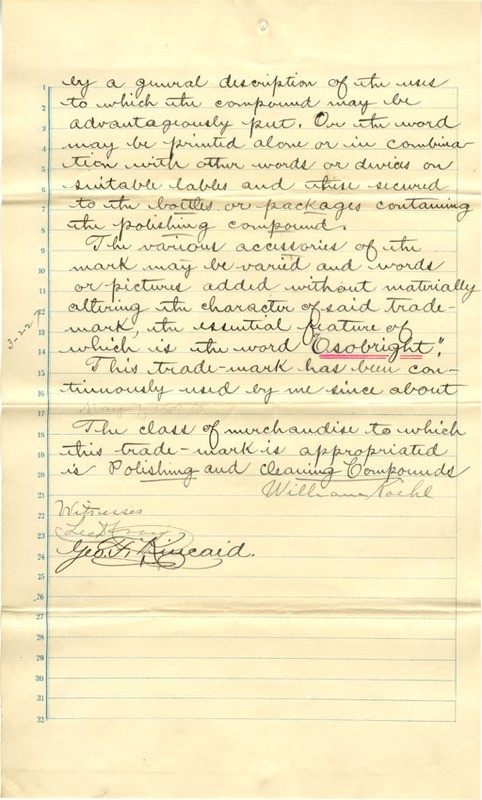 by a general description of the uses
to which the compound may be
advantageously put. Or the word
may be printed alone or in combina-
tion with other words or divices on
suitable lables and these secured
to the bottles or packages containing
the polishing compound.
The various accessories of the
mark may be varied and words
or pictures added without materially
altering the character of said trade-
mark, the essential feature of
which is the word "Osobright".
This trade-mark has been con-
tinuously used by me since about
May 1,
The class of merchandise to which
this trade-mark is appropriated
is Polishing and cleaning Compounds
William
Witnesses
Geo. F. Kincaid.
3-22
1
2
3
4
5
6
7
8
9
10
11
12
13
14
15
16
17
18
19
20
21
22
23
24
25
26
27
28
29
30
31
32